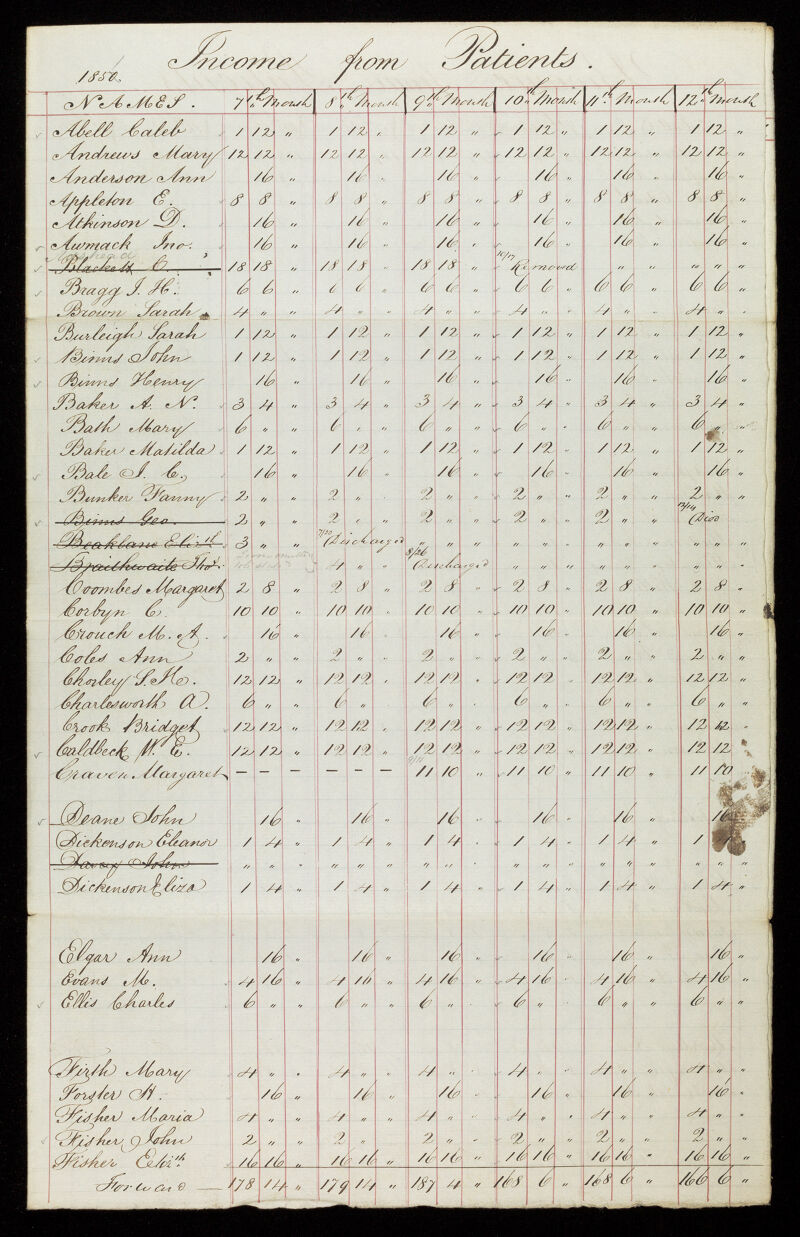 Income from Patients.
1850
NAMES. 7th Month 8th Month 9th Month 10th Month 11th Month 12th Month
Abell Caleb 1 12 " 1 12 " 1 12 " 1 12 " 1 12 " 1 12 "
Andrews Mary 12 12 " 12 12 " 12 12 " 12 12 " 12 12 " 12 12 "
Anderson Ann 16 " 16 " 16 " 16 " 16 " 16 "
Appleton E. 8 8 " 8 8 " 8 8 " 8 8 " 8 8 " 8 8 "
Atkinson D. 16 " 16 " 16 " 16 " 16 " 16 "
Awmack Jno. 16 " 16 " 16 " 16 " 16 " 16 "
Blackett C. 18 18 " 18 18 " 18 18 " 10/17 Removed " " " " " "
Bragg J. H. 6 6 " 6 6 " 6 6 " 6 6 " 6 6 " 6 6 "
Brown Sarah 4 " " 4 " " 4 " " 4 " " 4 " " 4 " "
Burleigh Sarah 1 12 " 1 12 " 1 12 " 1 12 " 1 12 " 1 12 "
Binns John 1 12 " 1 12 " 1 12 " 1 12 " 1 12 " 1 12 "
Binns Henry 16 " 16 " 16 " 16 " 16 " 16 "
Baker A. N. 3 4 " 3 4 " 3 4 " 3 4 " 3 4 " 3 4 "
Bath Mary 6 " " 6 " " 6 " " 6 " " 6 " " 6 " "
Baker Matilda 1 12 " 1 12 " 1 12 " 1 12 " 1 12 " 1 12 "
Bale J. C. 16 " 16 " 16 " 16 " 16 " 16 "
Bunker Fanny 2 " " 2 " " 2 " " 2 " " 2 " " 2 " "
Binns Geo. 2 " " 2 " " 2 " " 2 " " 2 " " Died
Beakbane Elizth 3 " " Discharged " " " " " " " " " " " "
Braithwaite Thos. 4 " " 8/26 Discharged " " " " " " " " "
Coombes Margaret 2 8 " 2 8 " 2 8 " 2 8 " 2 8 " 2 8 "
Corbyn C. 10 10 " 10 10 " 10 10 " 10 10 " 10 10 " 10 10 "
Crouch M. A. 16 " 16 " 16 " 16 " 16 " 16 "
Coles Ann 2 " " 2 " " 2 " " 2 " " 2 " " 2 " "
Chorley S. H. 12 12 " 12 12 " 12 12 " 12 12 " 12 12 " 12 12 "
Charlesworth A. 6 " " 6 " " 6 " " 6 " " 6 " " 6 " "
Crook Bridget 12 12 " 12 12 " 12 12 " 12 12 " 12 12 " 12 12 "
Caldbeck W. E. 12 12 " 12 12 " 12 12 " 12 12 " 12 12 " 12 12 "
Craven Margaret – – – – – – 11 10 " 11 10 " 11 10 " 11 10
Deane John 16 " 16 " 16 " 16 " 16 " 16
Dickenson Eleanor 1 4 " 1 4 " 1 4 " 1 4 " 1 4 " 1
John " " " " " " " " " " " " " " " " " "
Dickenson Eliza 1 4 " 1 4 " 1 4 " 1 4 " 1 4 " 1 4 "
Elgar Ann 16 " 16 " 16 " 16 " 16 " 16 "
Evans M. 4 16 " 4 16 " 4 16 " 4 16 " 4 16 " 4 16 "
Ellis Charles 6 " " 6 " " 6 " " 6 " " 6 " " 6 " "
Firth Mary 4 " " 4 " " 4 " " 4 " " 4 " " 4 " "
Forster H. 16 " 16 " 16 " 16 " 16 " 16 "
Fisher Maria 4 " " 4 " " 4 " " 4 " " 4 " " 4 " "
Fisher John 2 " " 2 " " 2 " " 2 " " 2 " " 2 " "
Fisher Elizth 16 16 " 16 16 " 16 16 " 16 16 " 16 16 " 16 16 "
Forward 178 14 " 179 14 " 187 4 " 168 6 " 168 6 " 166 6 "